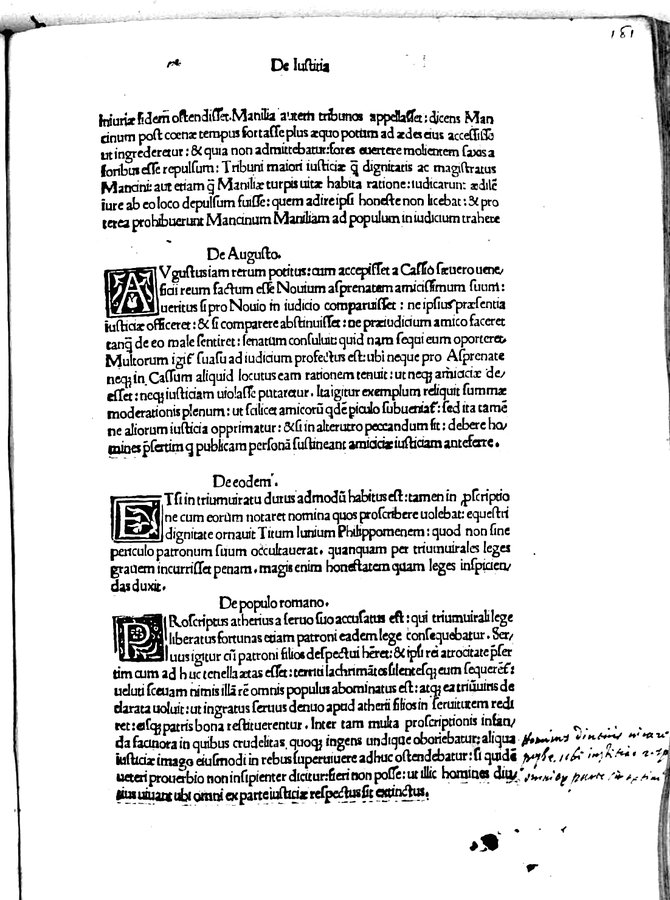 181
De Iustitia
iniuriæ fidem̄ ostendisset. Manilia autem tribunos appellasset: dicens Man
cinum post coenæ tempus fortasse plus æquo potum ad ædes eius accessisse
ut ingrederetur: & quia non admittebatur: fores euertere molientem saxis a
foribus esse repulsum: Tribuni maiori iusticiæ q̄ dignitatis ac magistratus
Mancini: aut etiam q̄ Maniliæ turpis uitæ habita ratione: iudicarunt ædilē
iure ab eo loco depulsum fuisse: quem adire ipsi honeste non licebat: & pro
terea prohibuerunt Mancinum Maniliam ad populum in iudicium trahere
De Augusto.
AVgustus iam rerum potitus: cum accepisset a Cassio sæuero uene/
ficii reum factum esse Nouium asprenatem amicissimum suum:
ueritus si pro Nouio in iudicio comparuisset: ne ipsius præsentia
iusticiæ officeret: & si comparere abstinuisset: ne præiudicium amico faceret
tanq̄ de eo male sentiret: senatum consuluit: quid nam sequi eum oporteret.
Multorum igit̄ suasu ad iudicium profectus est: ubi neque pro Asprenate
neq; in Cassum aliquid locutus eam rationem tenuit: ut neq; amiciciæ de/
esset: neq; iusticiam uiolasse putaretur. Ita igitur exemplum reliquit summæ
moderationis plenum: ut scilicet amicorū qdē piculo subueniat̄: sed ita tamē
ne aliorum iusticia opprimatur: & si in alterutro peccandum sit: debere ho/
mines p̄sertim q publicam personā sustineant amiciciæ iusticiam anteferre.
De eodem.
ETsi in triumuiratu durus admodū habitus est: tamen in pscriptio
ne cum eorum notaret nomina quos proscribere uolebat: equestri
dignitate ornauit Titum Iunium Philippomenem: quod non sine
periculo patronum suum occultauerat. quanquam per triumuirales leges
grauem incurrisset penam. magis enim honestatem quam leges inspicien/
das duxit.
De populo romano.
PRoscriptus atherius a seruo suo accusatus est: qui triumuirali lege
liberatus fortunas etiam patroni eadem lege consequebatur. Ser/
uus igitur cū patroni filios despectui hēret: & ipsi rei atrocitate p̄ser
tim cum ad huc tenella ætas esset: territi lachrimātes silentesq; eum sequerēt̄:
ueluti sceuam nimis illā rē omnis populus abominatus est: atq; ea triūuiris de
clarata uoluit: ut ingratus seruus denuo apud atherii filios in seruitutem redi
ret: eisq; patris bona restituerentur. Inter tam multa proscriptionis infan/
da facinora in quibus crudelitas quoq; ingens undique oboriebatur: aliqua
iusticiæ imago eiusmodi in rebus superuiuere adhuc ostendebatur: si quidē
ueteri prouerbio non insipienter dicitur: fieri non posse: ut illic homines diu/
tius uiuant ubi omni ex parte iusticiæ respectus sit extinctus.
Homines diutius uiuere
ubi iustitiæ
omni ex parte sit extin